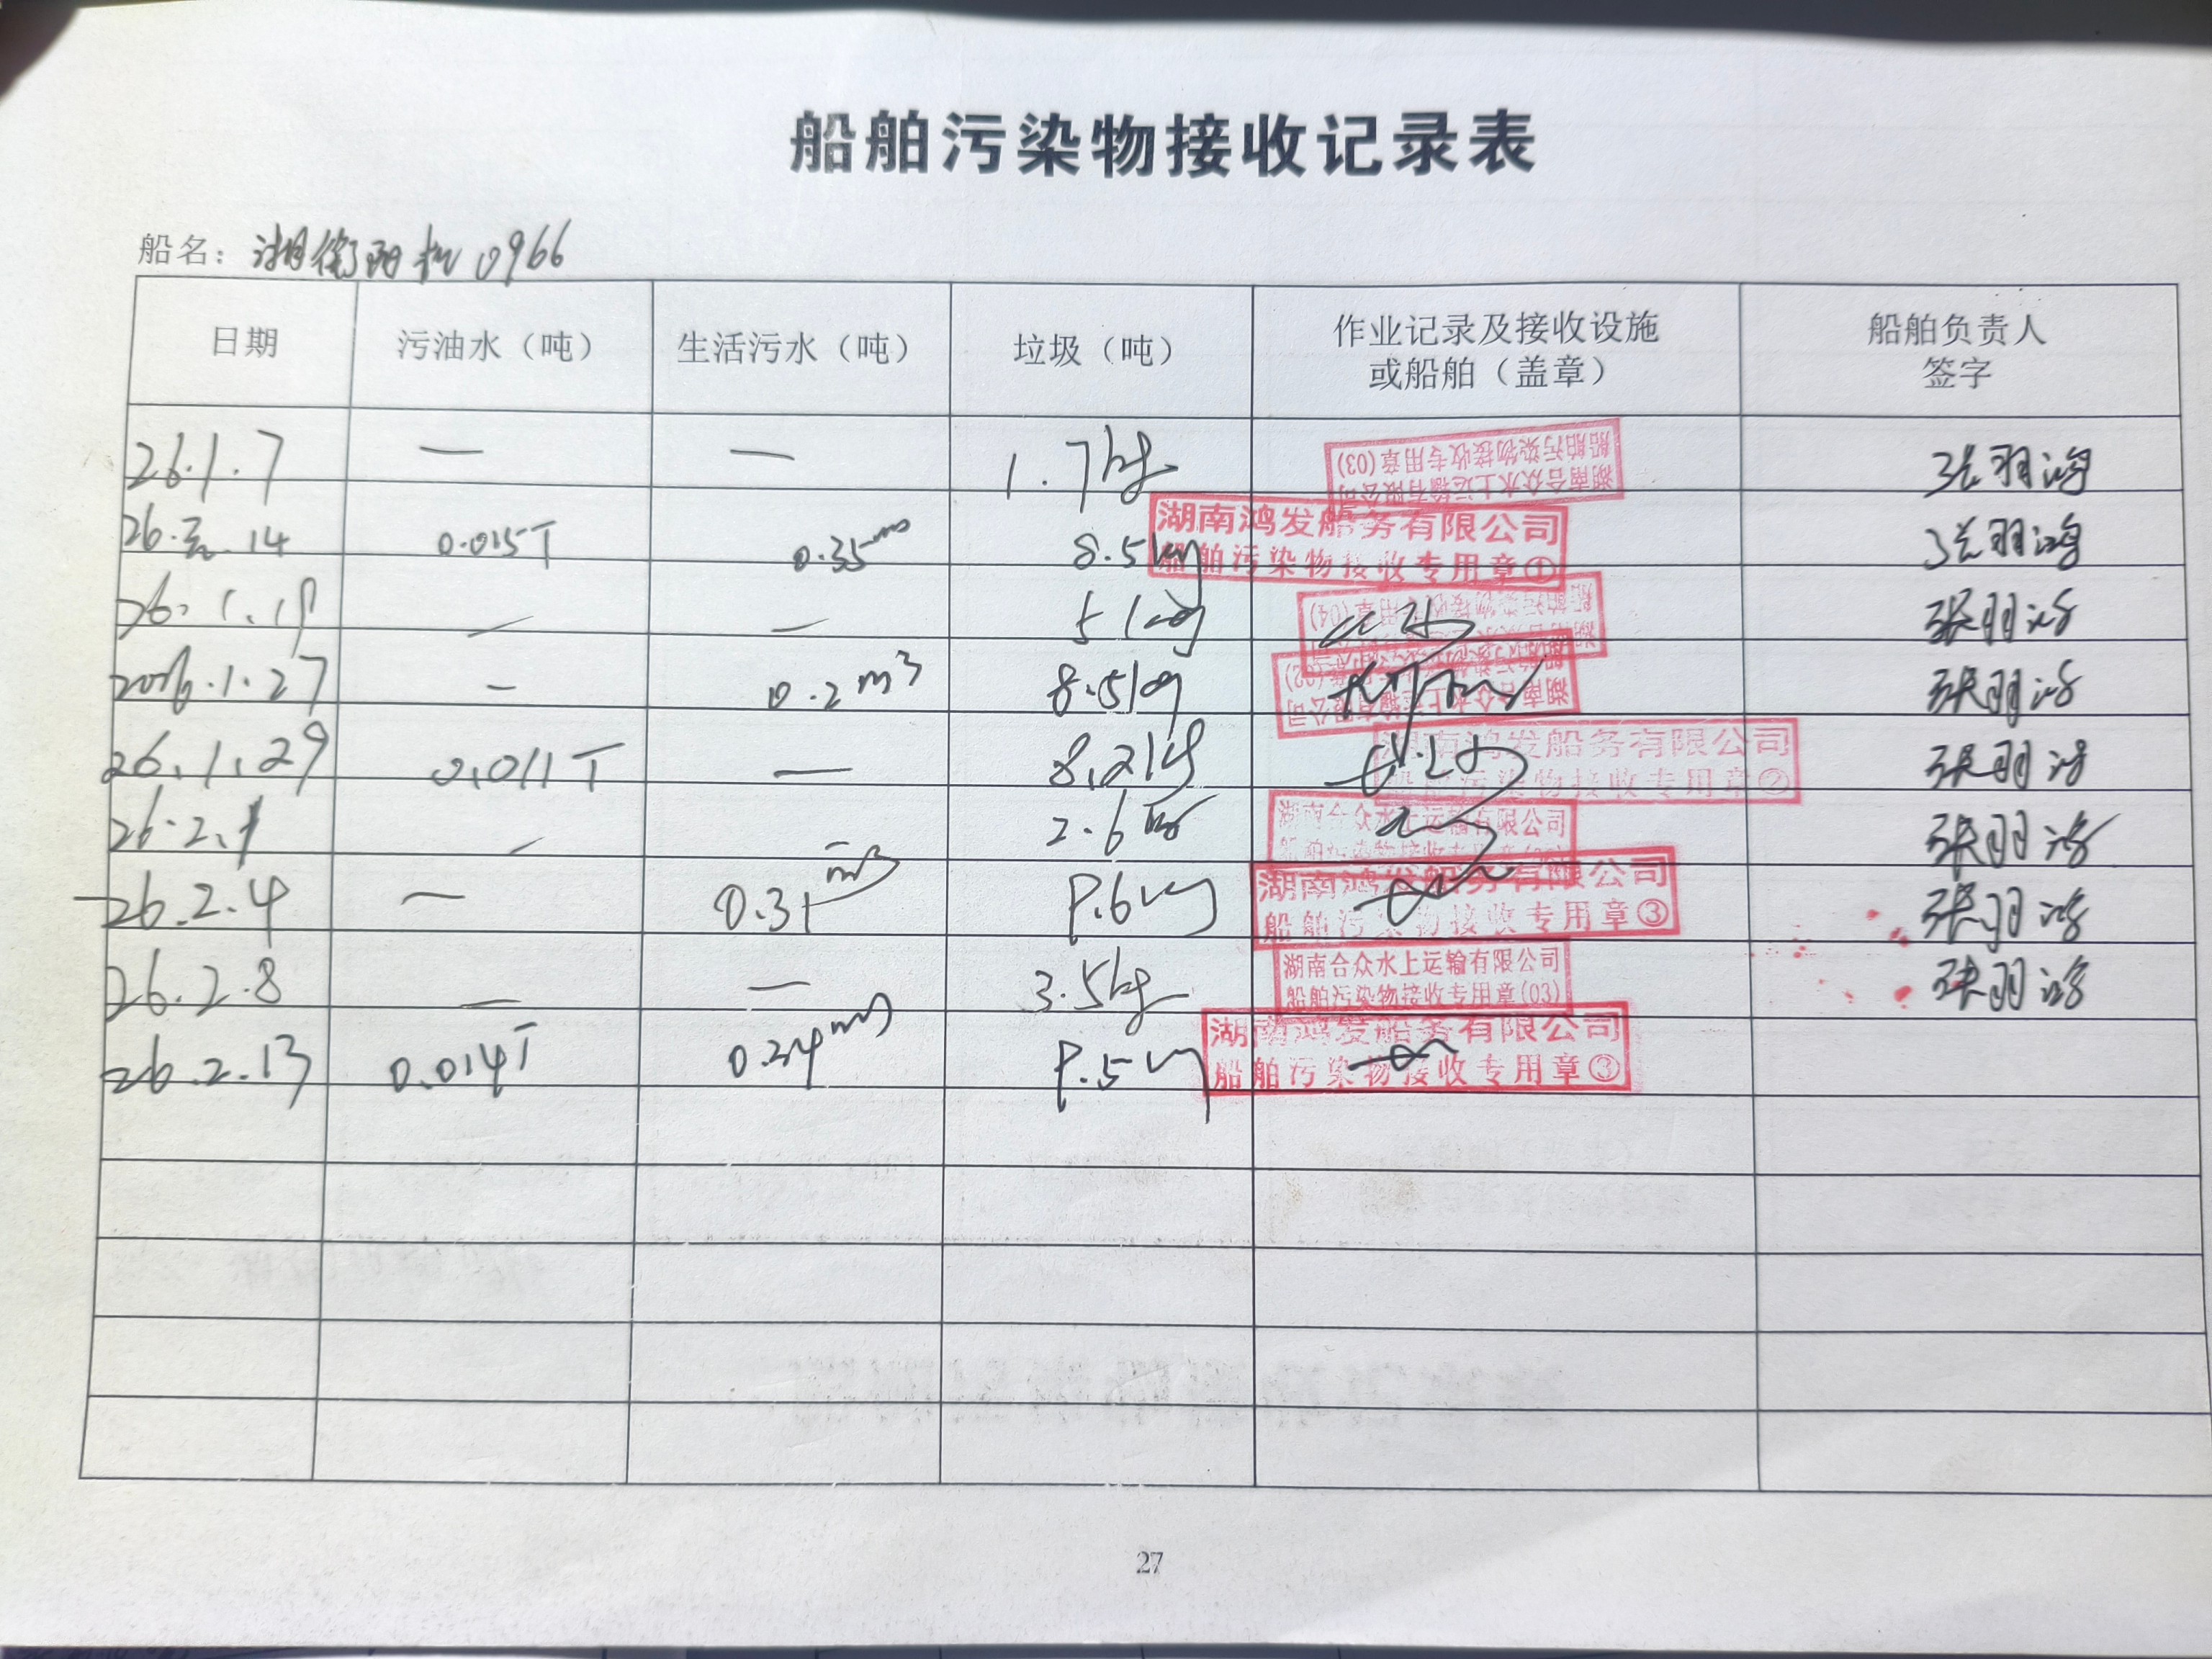 船舶污染物接收记录表
船名：湘衡阳机0966
日期 污油水（吨） 生活污水（吨） 垃圾（吨） 作业记录及接收设施或船舶（盖章） 船舶负责人签字
26.1.7 — — 1.7kg 湖南合众水上运输有限公司 船舶污染物接收专用章(03) 张羽鸿
26. .14 0.015T 0.35m³ 8.5kg 湖南鸿发船务有限公司 船舶污染物接收专用章① 张羽鸿
26.1.19 — — 5kg 船舶污染物接收专用章(04) 张羽鸿
2026.1.27 — 0.2m³ 8.5kg 湖南合众水上运输有限公司 (02) 张羽鸿
26.1.29 0.011T — 8.2kg 湖南鸿发船务有限公司 船舶污染物接收专用章② 张羽鸿
26.2.1 — — 2.6kg 湖南合众水上运输有限公司 船舶污染物接收专用章 张羽鸿
26.2.4 — 0.31m³ 9.6kg 湖南鸿发船务有限公司 船舶污染物接收专用章③ 张羽鸿
26.2.8 — — 3.5kg 湖南合众水上运输有限公司 船舶污染物接收专用章(03) 张羽鸿
26.2.13 0.014T 0.34m³ 9.5kg 湖南鸿发船务有限公司 船舶污染物接收专用章③
27